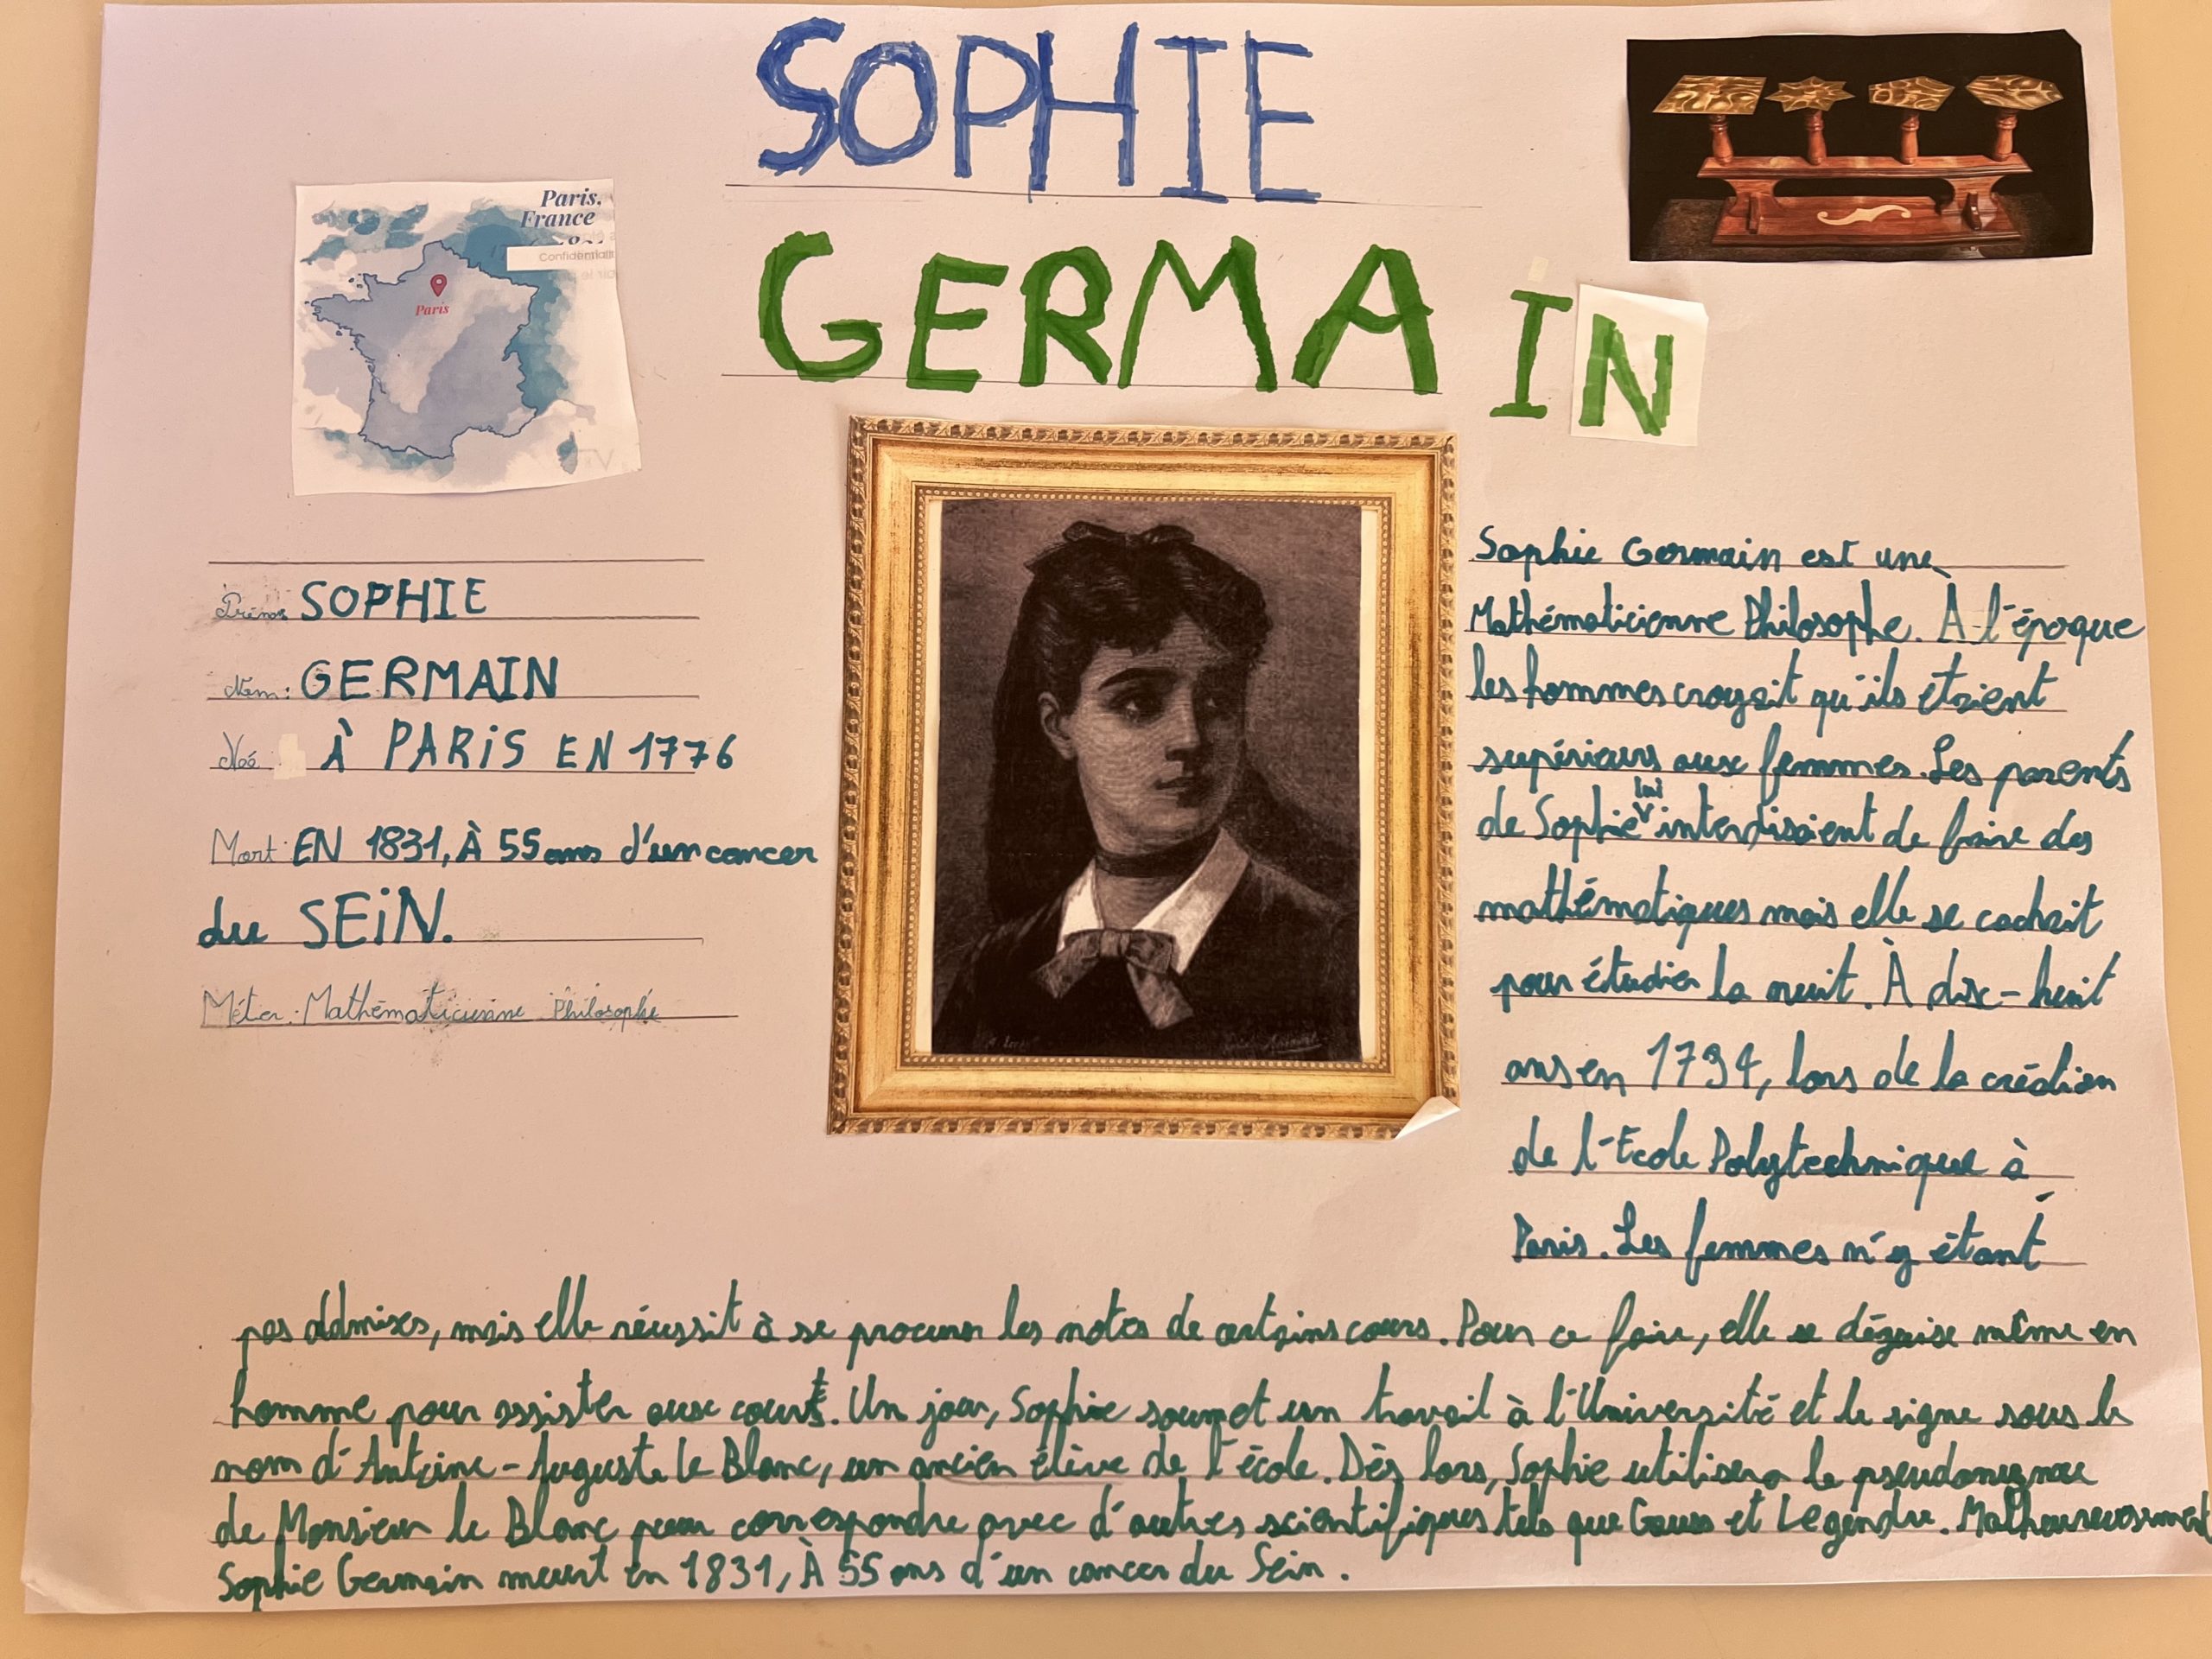 SOPHIE
GERMAIN
Paris,
France
Confidentiali
Paris
Prénom: SOPHIE
Nom: GERMAIN
Née À PARIS EN 1776
Mort: EN 1831, À 55 ans d'un cancer
du SEIN.
Métier: Mathématicienne Philosophe
Sophie Germain est une
Mathématicienne Philosophe. A l'époque
les hommes croyait qu'ils étaient
supérieurs aux femmes. Les parents
de Sophie lui interdisaient de faire des
mathématiques mais elle se cachait
pour étudier la nuit. À dix-huit
ans en 1794, lors de la création
de l'Ecole Polytechnique à
Paris. Les femmes n'y étant
pas addmises, mais elle réussit à se procurer les notes de certains cours. Pour ce faire, elle se déguise même en
homme pour assister aux cours. Un jour, Sophie soumet un travail à l'Université et le signe sous le
nom d'Antoine-Auguste Le Blanc, un ancien élève de l'école. Dès lors, Sophie utilisera le pseudonyme
de Monsieur le Blanc pour correspondre avec d'autres scientifiques tels que Gauss et Legendre. Malheureusement
Sophie Germain meurt en 1831, À 55 ans d'un cancer du Sein.